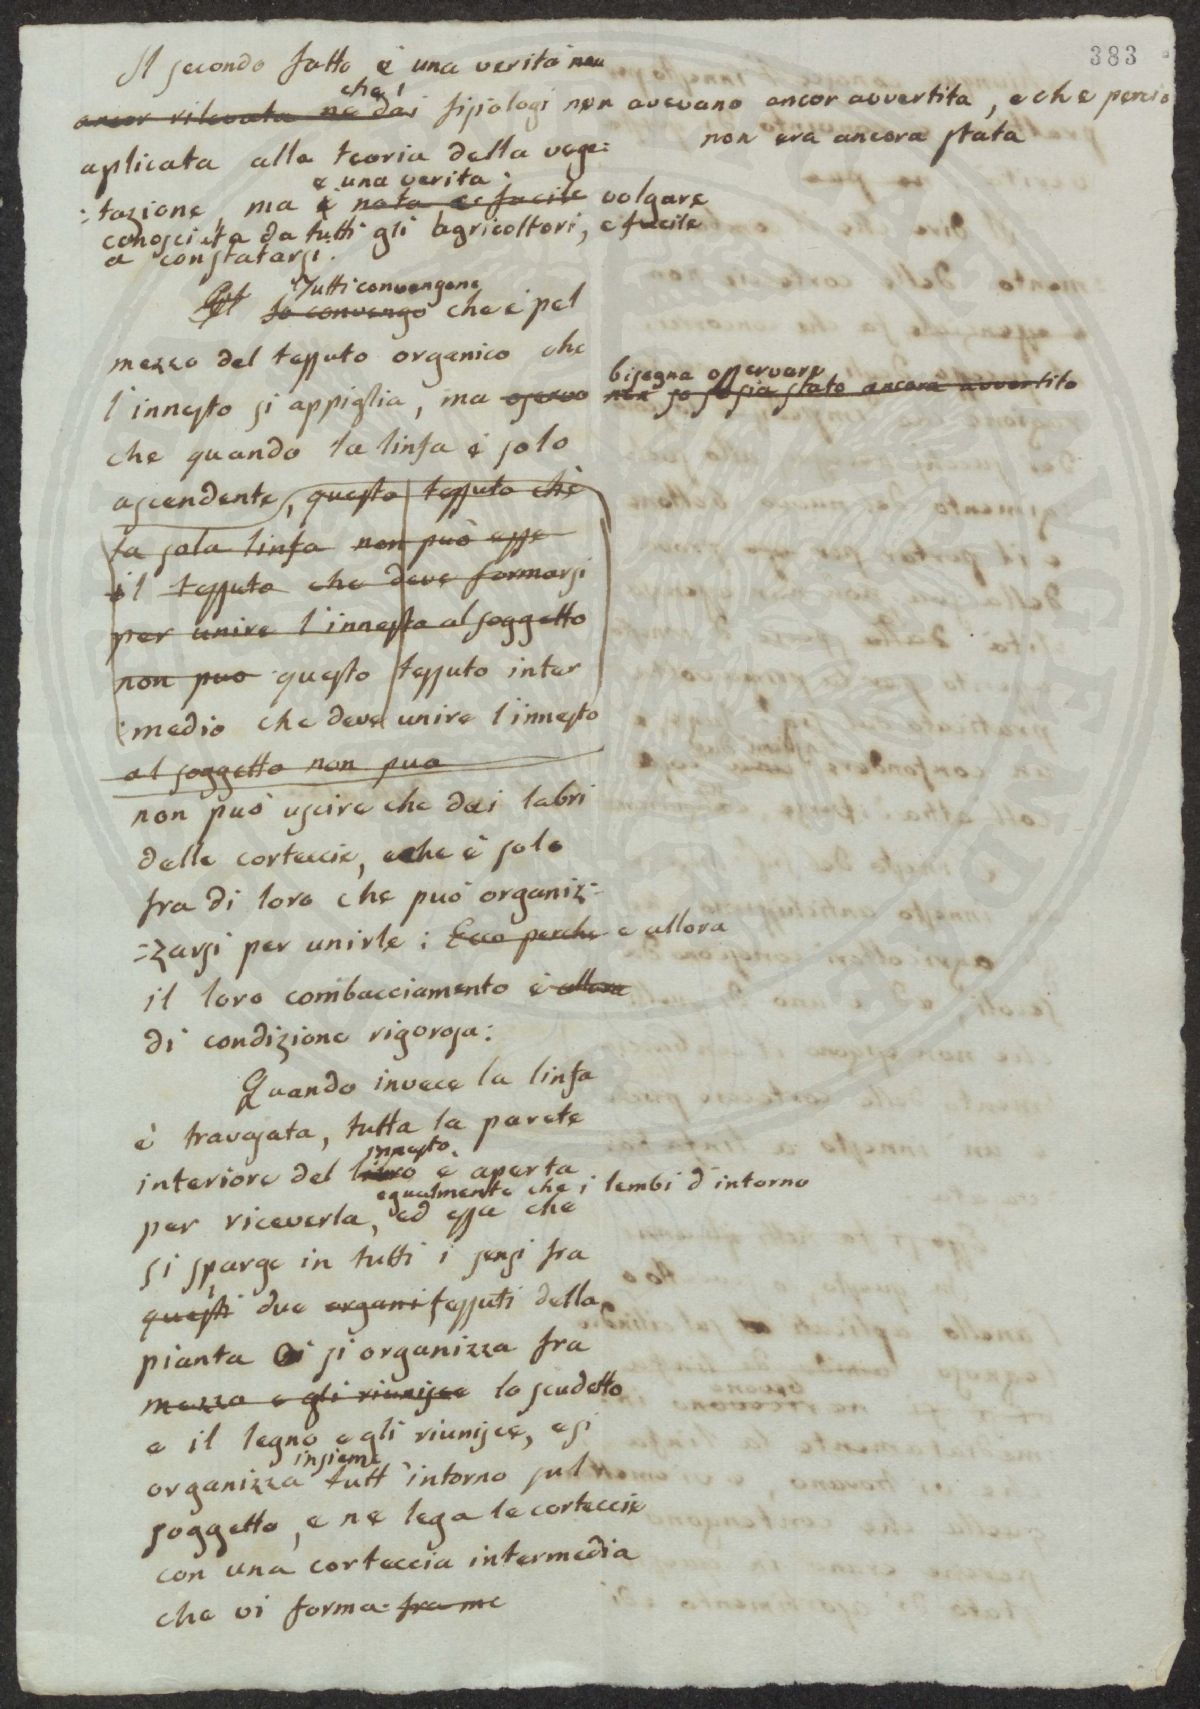 383
Il secondo fatto è una verità non
che i
ancor rilevata ne dai fisiologi non avevano ancor avvertita, e che perciò
non era ancora stata
aplicata alla teoria della vege=
e una verita
=tazione, ma è nota e facile volgare
conosciuta da tutti gli agricoltori, e facile
a constatarsi.
Tutti convengono
Io convengo che è pel
mezzo del tessuto organico che
bisogna osservare
l'innesto si appiglia, ma osservo non so se sia stato ancora avvertito
che quando la linfa è solo
ascendente, questo tessuto che
la sola linfa non può esse
il tessuto che deve formarsi
per unire l'innesto al soggetto
non puo questo tessuto inter
=medio che deve unire l'innesto
al soggetto non puo
non può uscire che dai labri
delle corteccie, e che è solo
fra di loro che può organiz=
=zarsi per unirle : Ecco perche e allora
il loro combacciamento è allora
di condizione rigorosa:
Quando invece la linfa
è travasata, tutta la parete
innesto
interiore del libro è aperta
egualmente che i lembi d'intorno
per riceverla, ed essa che
si sparge in tutti i sensi fra
questi due organi tessuti della
pianta si organizza fra
mezzo e gli riunisce lo scudetto
e il legno e gli riunisce, e si
insieme
organizza tutt'intorno sul
soggetto, e ne lega le corteccie
con una corteccia intermedia
che vi forma fra me